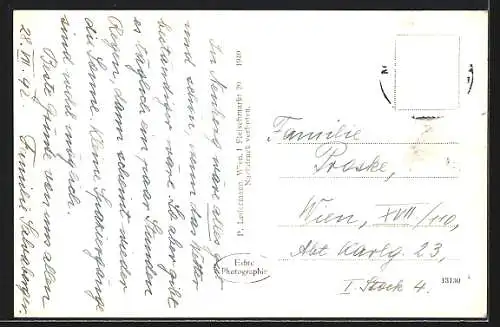 In Neuberg wäre alles gut
und schön, wenn das Wetter
beständiger wäre. So aber gibt
es täglich ein paar Stunden
Regen, dann scheint wieder
die Sonne. Kleine Spaziergänge
sind wohl möglich.
Beste Grüße von uns allen
28. VIII. 42. Familie
P. Ledermann, Wien, I Fleischmarkt 20
Nachdruck verboten.
Echte
Photographie
Familie
Proske,
Wien, XVIII/110,
Abt Karlg. 23,
I. Stock 4.
13130